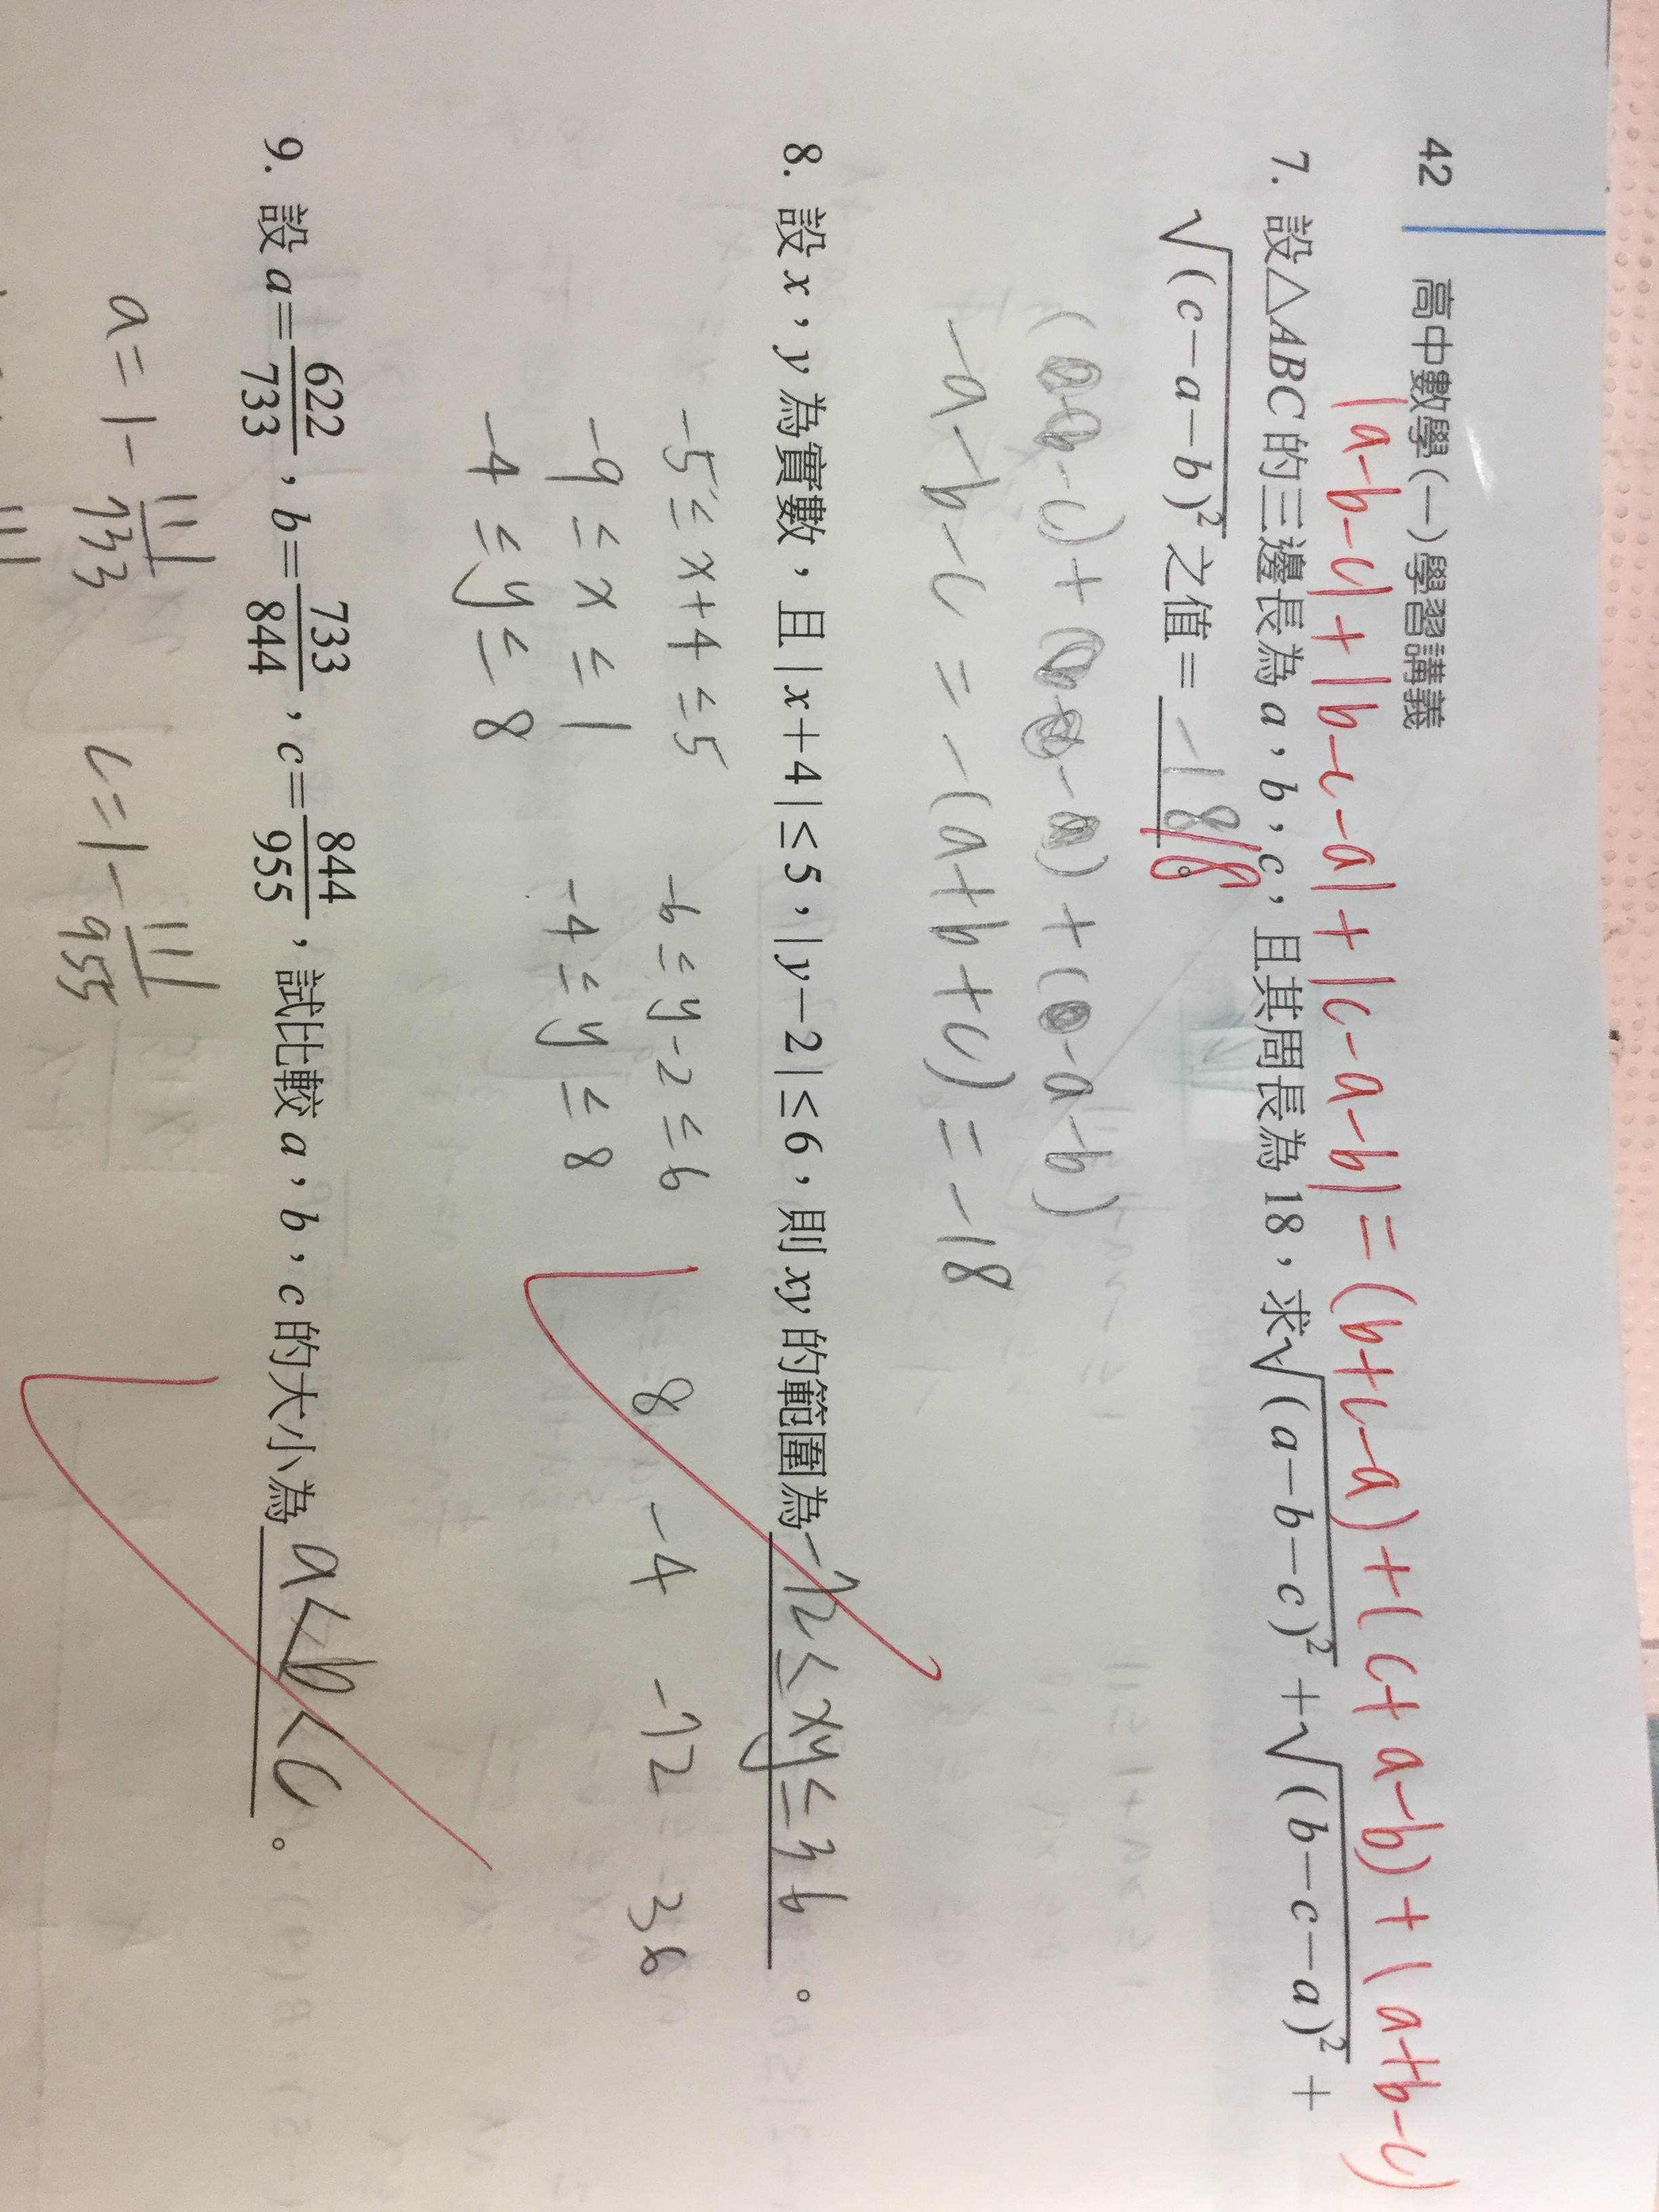 42 高中數學(一)學習講義
|a-b-c|+|b-c-a|+|c-a-b|=(b+c-a)+(c+a-b)+(a+b-c)
7. 設△ABC的三邊長為a,b,c,且其周長為18,求√(a-b-c)²+√(b-c-a)²+
√(c-a-b)²之值=-18 18。
-a-b-c=-(a+b+c)=-18
8. 設x,y為實數,且|x+4|≤5,|y-2|≤6,則xy的範圍為-72≤xy≤36。
-5≤x+4≤5 -6≤y-2≤6 8 -4 -72 36
-9≤x≤1 -4≤y≤8
-4≤y≤8
9. 設a=622/733,b=733/844,c=844/955,試比較a,b,c的大小為a<b<c。
a=1-111/733 c=1-111/955